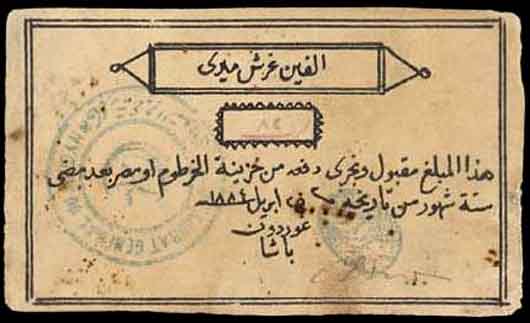 الفين غرش ميرى
٨٤
هذا المبلغ مقبول وتجرى دفعه من خزينة الخرطوم او مصر بعد مضى
ستة شهور من تاريخه ٢٥ ابريل ١٨٨٤
غوردون
باشا